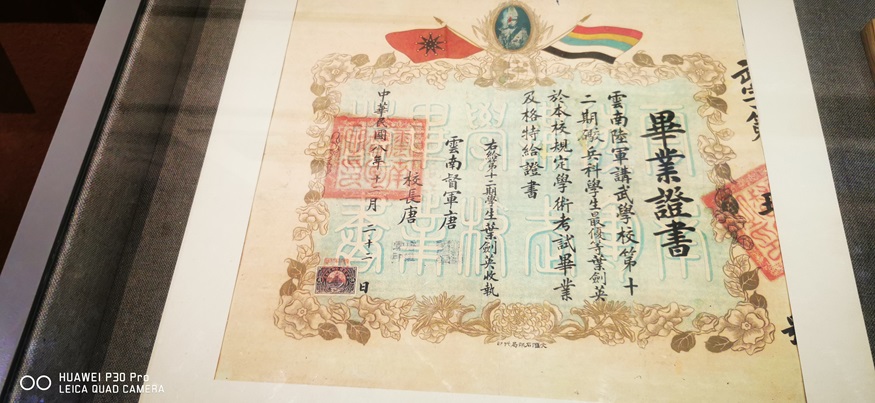 畢業證書
雲南陸軍講武學校第十
二期砲兵科學生最優等葉劍英
於本校規定學術考試畢業
及格特給證書
右給第十二期學生葉劍英收執
雲南督軍唐
校長唐
中華民國八年十二月二十二日
HUAWEI P30 Pro
LEICA QUAD CAMERA